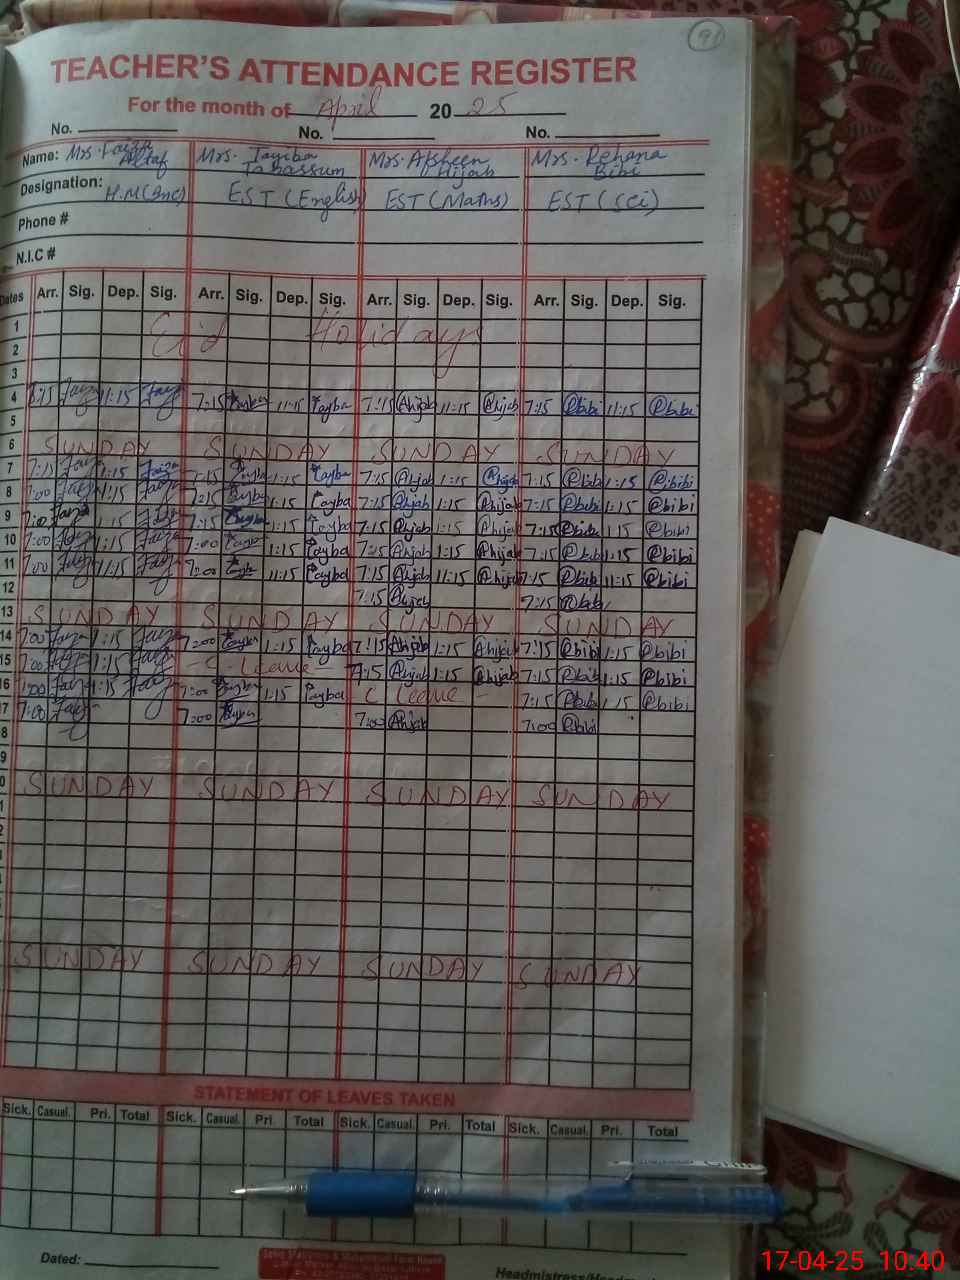 91
TEACHER'S ATTENDANCE REGISTER
For the month of April 2025
No. No. No.
Name: Mrs. Faiza Altaf Mrs. Tayiba Tabassum Mrs. Afsheen Hijab Mrs. Rehana Bibi
Designation: H.M(Snc) EST (English) EST (Maths) EST (Sci)
Phone #
N.I.C #
Dates Arr. Sig. Dep. Sig. Arr. Sig. Dep. Sig. Arr. Sig. Dep. Sig. Arr. Sig. Dep. Sig.
1 Eid Holidays
2
3
4 11:15 7:15 11:15 Tayba 7:15 Ahijab 11:15 Ahijab 7:15 @bibi 11:15 @bibi
5
6 SUNDAY SUNDAY SUNDAY SUNDAY
7 7:15 1:15 Faiza 7:15 Tayba 1:15 Tayba 7:15 Ahijab 1:15 Ahijab 7:15 @bibi 1:15 @bibi
8 7:00 1:15 7:15 Tayba 1:15 Tayba 7:15 Ahijab 1:15 Ahijab 7:15 @bibi 1:15 @bibi
9 7:00 1:15 7:15 Tayba 1:15 Tayba 7:15 Ahijab 1:15 Ahijab 7:15 @bibi 1:15 @bibi
10 7:00 1:15 7:00 Tayba 1:15 Tayba 7:15 Ahijab 1:15 Ahijab 7:15 @bibi 1:15 @bibi
11 7:00 11:15 7:00 11:15 Tayba 7:15 Ahijab 11:15 Ahijab 7:15 @bibi 11:15 @bibi
12 7:15 Ahijab 7:15 @bibi
13 SUNDAY SUNDAY SUNDAY SUNDAY
14 7:00 Faiza 1:15 Faiza 7:00 Tayba 1:15 Tayba 7:15 Ahijab 1:15 Ahijab 7:15 @bibi 1:15 @bibi
15 7:00 1:15 - C - Leave 7:15 Ahijab 1:15 Ahijab 7:15 @bibi 1:15 @bibi
16 7:00 1:15 7:00 Tayba 1:15 Tayba C Leave - 7:15 @bibi 1:15 @bibi
17 7:00 7:00 Tayba 7:00 Ahijab 7:00 @bibi
8
9
0 SUNDAY SUNDAY SUNDAY SUNDAY
1
2
SUNDAY SUNDAY SUNDAY SUNDAY
STATEMENT OF LEAVES TAKEN
Sick. Casual. Pri. Total Sick. Casual. Pri. Total Sick. Casual. Pri. Total Sick. Casual. Pri. Total
Dated:
17-04-25 10:40